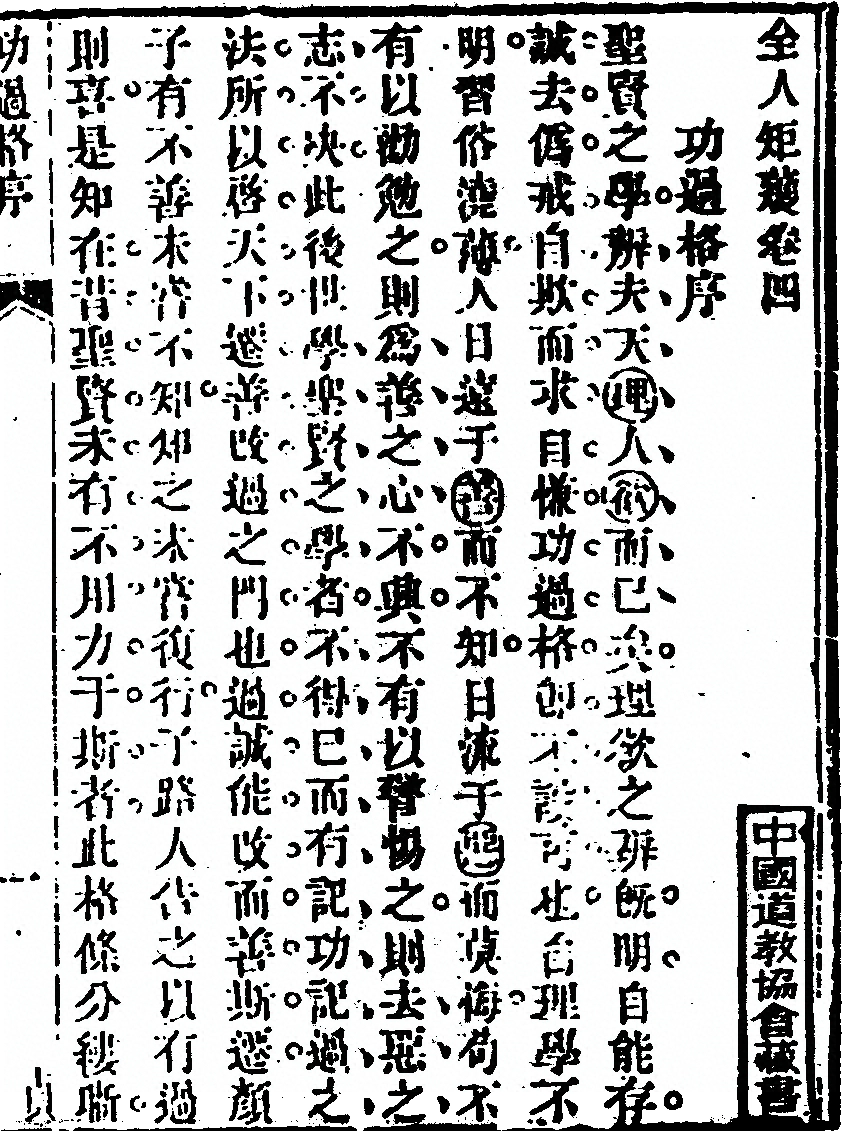 全人矩矱卷四
功過格序
聖賢之學辨夫天理人欲而已矣理欲之辨既明自能存
誠去僞戒自欺而求自慊功過格卽不設可也自理學不
明習俗澆薄人日遠于善而不知日流于惡而莫悔苟不
有以勸勉之則爲善之心不興不有以警惕之則去惡之
志不决此後世學聖賢之學者不得已而有記功記過之
法所以啓天下遷善改過之門也過誠能改而善斯遷顏
子有不善未嘗不知知之未嘗復行子路人告之以有過
則喜是知在昔聖賢未有不用力于斯者此格條分縷晰
功過格序
中國道教協會藏書